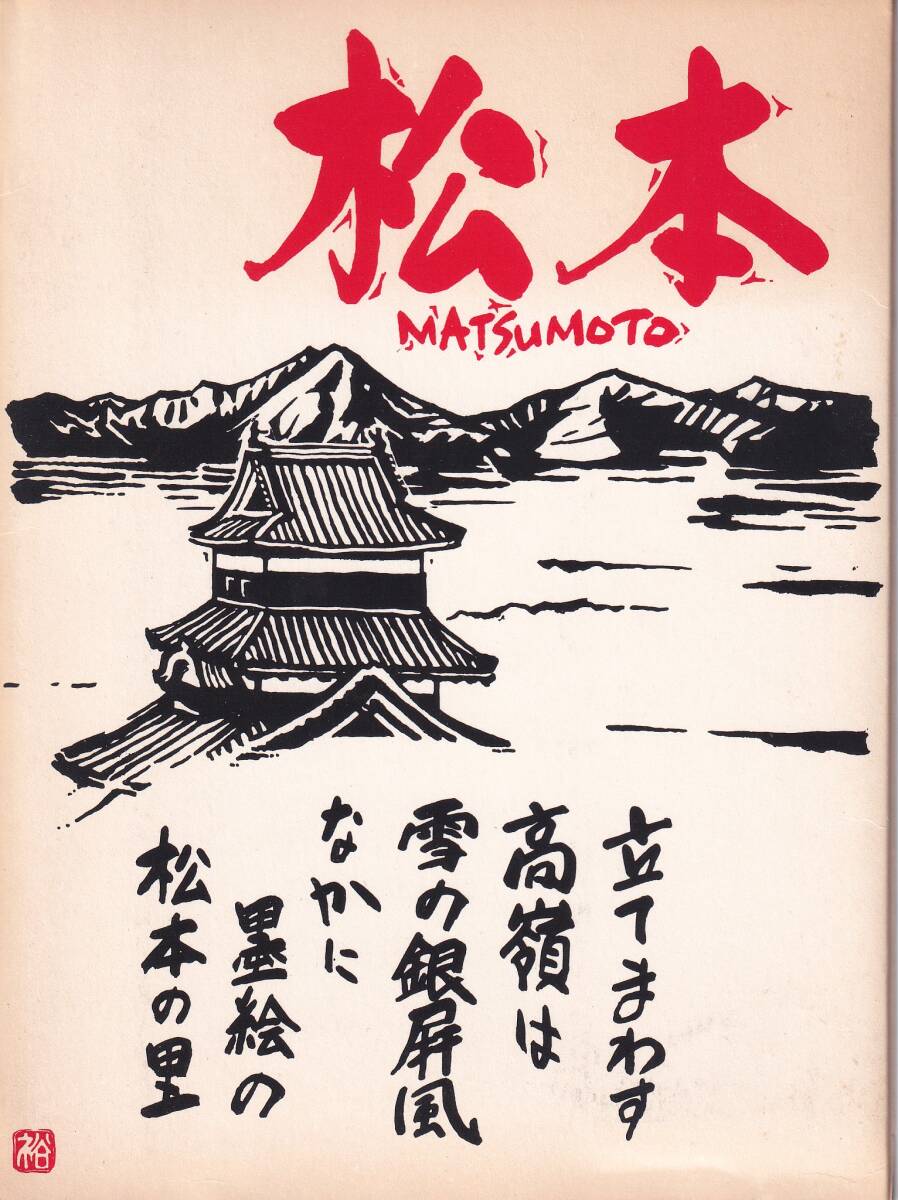 松本
MATSUMOTO
立てまわす
高嶺は
雪の銀屏風
なかに
墨絵の
松本の里
裕